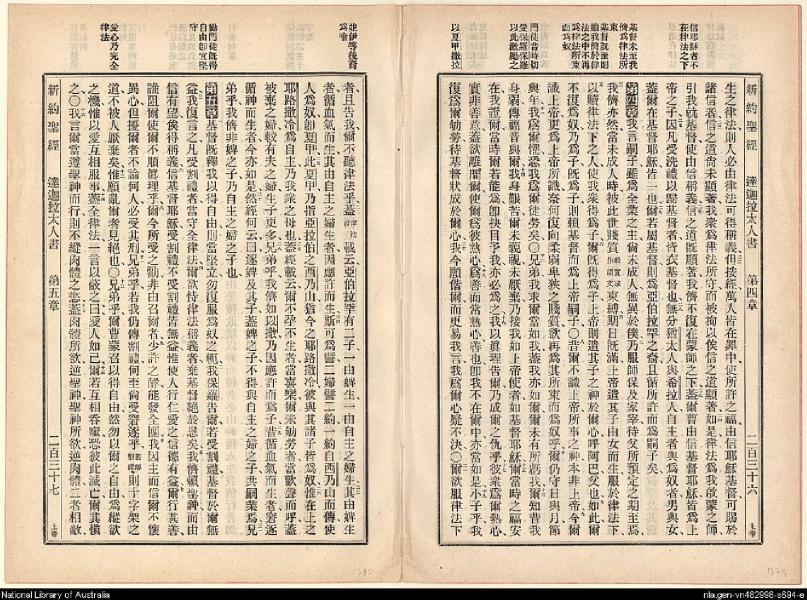 信耶穌者不在律法之下
基督未至我儕為律法所束
基督既至則贖我儕於律法之中不再為律法所束而為奴
門徒昔時切愛保羅保羅以此激勵之
以夏甲撒拉
新約聖經 達迦拉太人書 第四章 二百三十六 上帝
生之律法則人必由律法可得稱義但按經萬人皆在罪中使所許之福由信耶穌基督可賜於
諸信者信之道尚未顯著我眾為律法所守而被拘以俟信之道顯著如是律法為我啟蒙之師
引我就基督使由信稱義信之道既顯著我儕不復在蒙師之下蓋爾曹由信基督耶穌皆為上
帝之子因凡受洗禮以歸基督者皆衣基督也無分猶太人與希拉人自主者與為奴者男與女
蓋爾在基督耶穌皆一也爾若屬基督則為亞伯拉罕之裔且循所許而為嗣子矣
第四章我言嗣子雖為全業之主尚未成人無異於僕乃服師保及家宰待父所預定之期至焉
我儕亦然當未成人時被此世質束縛期日既滿上帝遣其子由女而生服於律法下
以贖律法下之人使我眾得為子爾既得為子上帝則遣其子之神於爾心呼阿巴父也如此爾
不復為奴乃為子既為子則賴基督而為上帝嗣子〇昔爾不識上帝所事之神本非上帝今爾
識上帝更為上帝所識奈何復向柔弱卑狹之質欲再為其所束而為奴乎爾仍守日與月節
與年我為爾懼恐我為爾徒勞矣〇兄弟我求爾當如我蓋我亦如爾爾未有所虧我爾知昔我
身弱傳福音與爾我身艱苦爾未藐視未厭棄乃接我如上帝使者如基督耶穌爾當時之福安
在我證爾當時爾若能為即抉目予我亦必為之我以真理告爾乃成爾之仇乎彼眾為爾熱心
實非善意蓋欲離間爾使爾為彼熱心為善而常熟心善也即我不在爾中亦當如是小子乎我
復為爾劬勞待基督狀成於爾心我今願偕爾而更易我言我為爾心疑不決〇爾欲服律法下
並伊等後裔為喻
勸門徒既得自由即宜堅守
愛心乃完全律法
新約聖經 達迦拉太人書 第五章 二百三十七 上帝
者且告我爾不聽律法乎蓋載云亞伯拉罕有二子一由婢生一由自主之婦生其由婢生
者循血氣而生其由自主之婦生者因應許而生斯可為譬二婦譬二約一約自西乃山而傳使
人為奴即夏甲此夏甲乃指亞拉伯之西乃山猶今之耶路撒冷彼與其諸子皆為奴惟在上之
耶路撒冷為自主乃我眾之母也蓋經載云爾不孕不生者當喜樂爾未劬勞者當歡聲而呼蓋
被棄之婦較有夫之婦生子更多兄弟乎我儕如以撒乃因應許而為子昔循血氣而生者窘逐
循神而生者今亦如是然經何云曰逐婢及其子蓋婢之子不得與自主之婦之子共嗣業焉兄
弟乎我儕非婢之子乃自主之婦之子也
第五章基督既釋我以得自由則當堅立勿復服為奴之軛我保羅告爾若受割禮基督於爾無
益我復言之凡受割禮者當守全律法爾欲恃律法稱義者棄基督絕於恩矣我儕賴聖神而由
信有望俟得稱義信基督耶穌受割禮不受割禮皆無益惟使人行仁愛之信德有益爾行其善
誰阻爾使爾不順真理乎爾今所受之勸非由召爾者少許之酵能發全團我因主而信爾不懷
異心但擾爾者不論何人必受其刑兄弟乎若我仍傳割禮何至尚受窘逐乎則十字架之
道不被人厭棄矣惟願亂爾者見絕也〇兄弟乎爾曹蒙召以得自由然勿以爾之自由為縱欲
之機惟以愛互相服事蓋全律法一言以蔽之曰愛人如己爾若互相吞噬恐彼此滅亡爾其慎
之〇我言爾當遵聖神而行則不縱肉體之慾蓋肉體所欲逆聖神聖神所欲逆肉體二者相敵
National Library of Australia
nla.gen-vn482998-s694-e